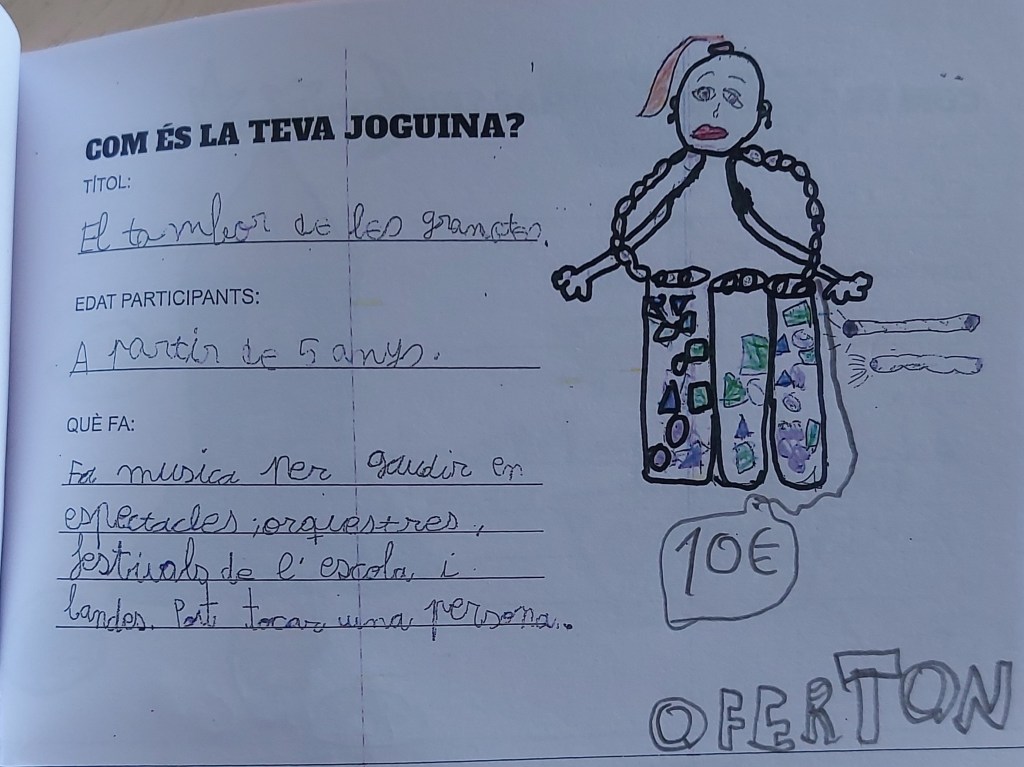 COM ÉS LA TEVA JOGUINA?
TÍTOL:
El tambor de les granotes.
EDAT PARTICIPANTS:
A partir de 5 anys.
QUÈ FA:
Fa musica per gaudir en
espectacles, orquestres,
festivals de l'escola i
bandes. Pot tocar una persona.
10€
OFERTON